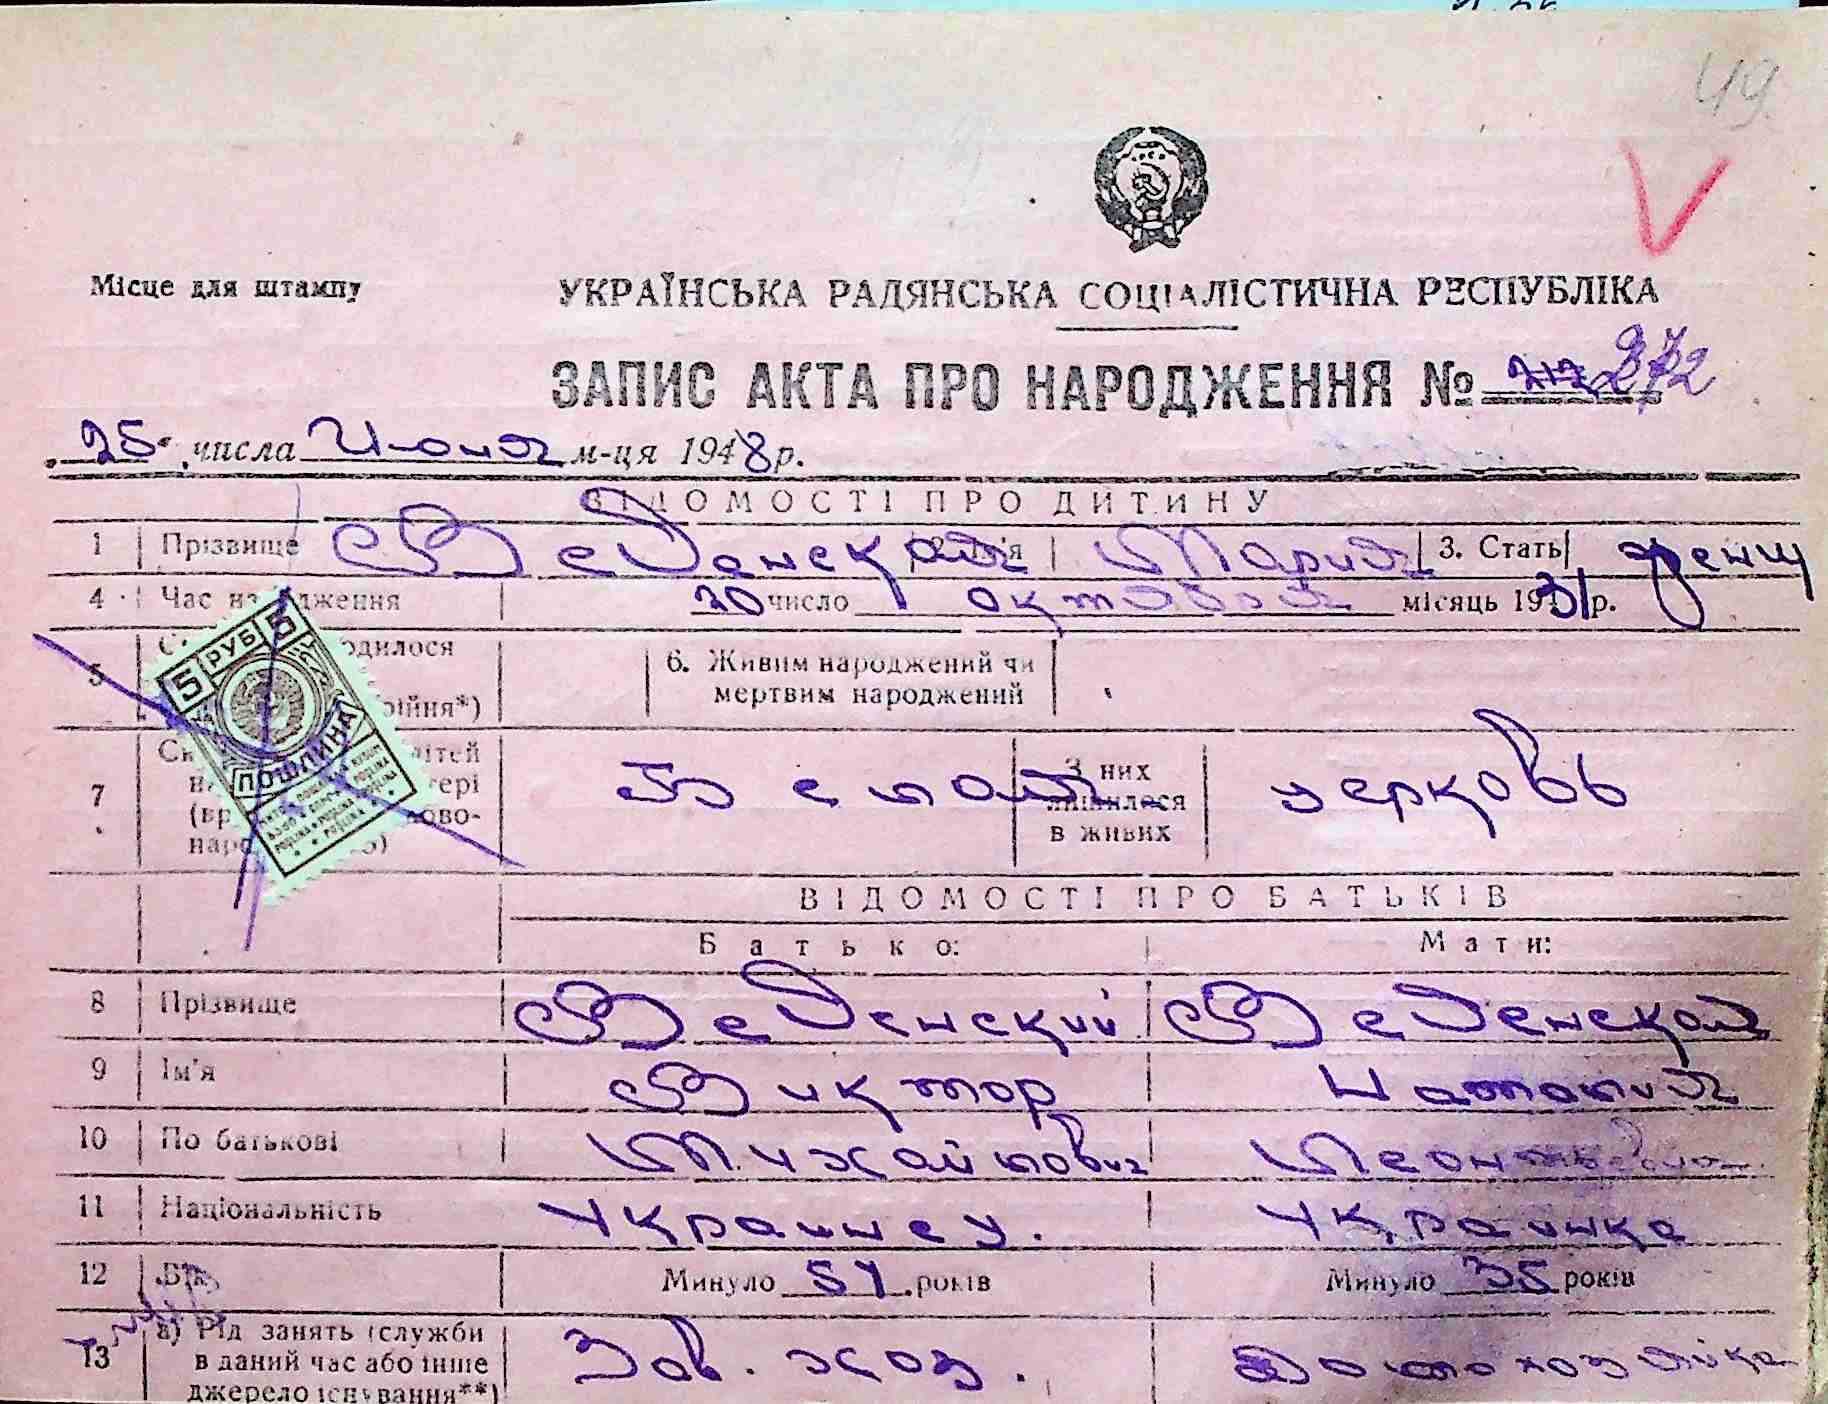 49.
Місце для штампу
УКРАЇНСЬКА РАДЯНСЬКА СОЦІАЛІСТИЧНА РЕСПУБЛІКА
ЗАПИС АКТА ПРО НАРОДЖЕННЯ № 272
25 числа Июня м-ця 1948 р.
ВІДОМОСТІ ПРО ДИТИНУ
1 Прізвище Веденская 2. Ім'я Мария 3. Стать женщ
4 Час народження 20 число октября місяць 1931 р.
5 одилося двійня*) 6. Живим народжений чи
мертвим народжений
7 дітей матері ново- Белая З них лишилося в живих церковь
5 РУБ 5
ПОШЛИНА
ВІДОМОСТІ ПРО БАТЬКІВ
Батько: Мати:
8 Прізвище Веденский Веденская
9 Ім'я Виктор Наталия
10 По батькові Михайлович Леонтьевна
11 Національність Украинец. Украинка
12 Вік Минуло 51 років Минуло 35 років
13 а) Рід занять (служби Зав. хоз. Домохозяйка
в даний час або інше
джерело існування**)